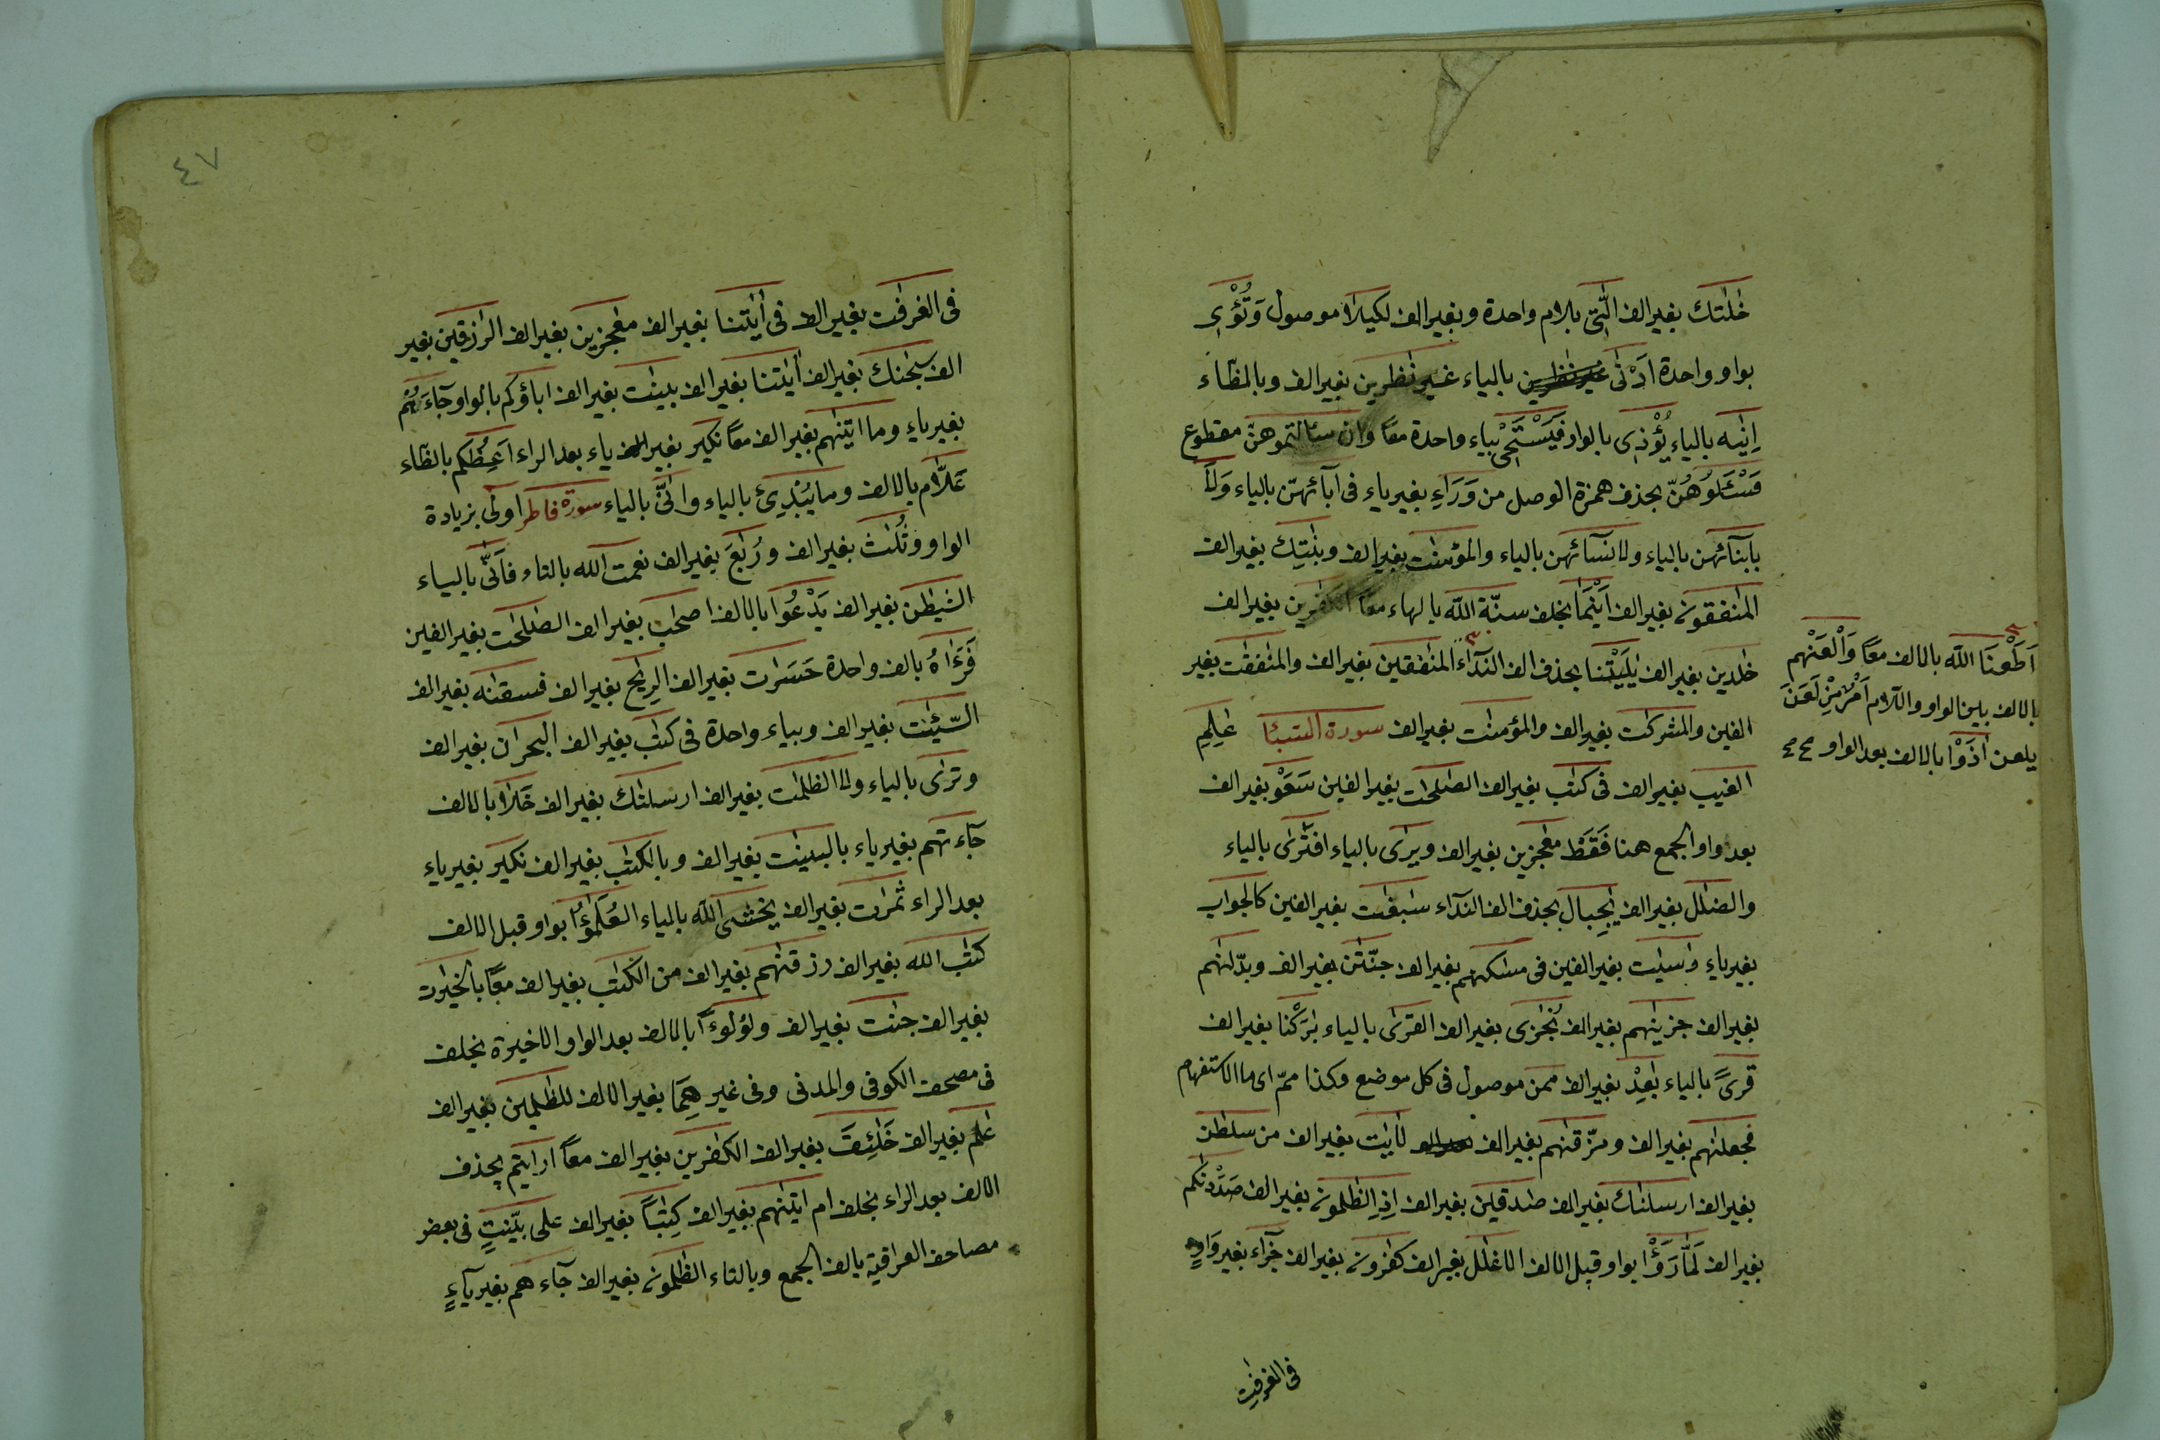 خٰلٰتك بغير الف الّٰتى بلام واحدة وبغير الف لكيلا موصول وَتُؤْى
بواو واحدة اَدْنٰى بالياء غير نٰظرين بغير الف وبالمظّاء
اِنٰيه بالياء يُؤْذى بالواو فَيَسْتَحْىٖ بياء واحدة معًا وان سئالتموهنّ مقطوع
فَسْئَلُوهُنّ بحذف همزة الوصل من وَرَاءِ بغير ياء فى آبآئهنّ بالياء وَلَا
بابنآئهن بالياء ولا نسآئهن بالياء والمؤمنٰت بغير الف وبنٰتك بغير الف
المنٰفقون بغير الف اَيْنَمَا بخلف سنّة اللّه بالهاء معًا الكٰفرين بغير الف
خٰلدين بغير الف يٰلَيْتنا بحذف الف الندآء المنٰفقين بغير الف والمنٰفقٰت بغير
الفين والمشركٰت بغير الف والمؤمنٰت بغير الف سورة السّبأ عٰلِمِ
الغيب بغير الف فى كتٰب بغير الف الصٰلحٰت بغير الفين سَعَوْ بغير الف
بعد واو الجمع هنا فَقَطْ معٰجزين بغير الف ويرٰى بالياء افترٰى بالياء
والضلٰل بغير الف يٰجِبال بحذف الف الندآء سٰبغٰت بغير الفين كالجواب
بغير ياء رٰاسيٰت بغير الفين فى مسٰكنهم بغير الف جنّتٰن بغير الف وبدّلنٰهم
بغير الف جزينٰهم بغير الف نُجٰزى بغير الف القرٰى بالياء بٰرَكْنا بغير الف
قرًى بالياء بٰعِدْ بغير الف ممن موصول فى كل موضع وكذا ممّ اى ما الاستفهام
فجعلنٰهم بغير الف ومزّقنٰهم بغير الف لاٰيٰت بغير الف من سلطٰن
بغير الف ارسلنٰك بغير الف صٰدقين بغير الف اِذِ الظٰلمون بغير الف صَدَدْنٰكم
بغير الف لَمَّا رَوَُا بواو قبل الالف الاغلٰل بغير الف كٰفرون بغير الف جزآء بغير وَاوٍ
فى الغرفٰت
اَطَعْنَا اللّه بالالف معًا وَالْعَنْهم
بالالف بين الواو واللام اَمْرٌ مِنْ لَعَنَ
يلعن اٰذَوْا بالالف بعد الواو صح صح
٤٧
فى الغرفٰت بغير الف فى أيٰتنا بغير الف معٰجزين بغير الف الرّٰزقين بغير
الف سبحٰنك بغير الف أيٰتنا بغير الف بينٰت بغير الف اباؤكم بالواو جآءَهُمْ
بغير ياءٍ وما اتينٰهم بغير الف معًا نكير بغير ياء بعد الراء اَعِظُكم بالظّاء
عَلّٰام بالالف وما يُبْدِئُ بالياء وانّٰى بالياء سورة فاطر اولٰى بزيادة
الواو وثُلٰث بغير الف ورُبٰعَ بغير الف نعمت اللّه بالتاء فَاَنّٰى بالياء
الشيطٰن بغير الف يَدْعُوا بالالف اصحٰب بغير الف الصٰلحٰت بغير الفين
فَرَءَاهُ بالف واحدة حَسَرٰت بغير الف الرِيٰح بغير الف فسقنٰه بغير الف
السّيّئٰت بغير الف وبياء واحدة فى كتٰب بغير الف البحرٰن بغير الف
وترٰى بالياء ولا الظلمٰت بغير الف ارسلنٰك بغير الف خَلَا بالالف
جآءتهم بغير ياء بالبينٰت بغير الف وبالكتٰب بغير الف نكير بغير ياء
بعد الراء ثمرٰت بغير الف يخشى اللّه بالياء العُلَمٰؤُا بواو قبل الالف
كتٰب اللّه بغير الف رزقنٰهم بغير الف من الكتٰب بغير الف معًا بالخيرٰت
بغير الف جنٰت بغير الف ولؤلوءًا بالالف بعد الواو الاخيرة بخلف
فى مصحف الكوفى والمدنى وفى غيرهِمَا بغير الالف للظٰلمين بغير الف
عٰلم بغير الف خَلٰئِفَ بغير الف الكٰفرين بغير الف معًا ارايتم بحذف
الالف بعد الراء بخلف ام اتينٰهم بغير الف كِتٰبًا بغير الف على بيّنٰتٍ فى بعض
مصاحف العراقية بالف الجمع وبالتاء الظٰلمون بغير الف جآءهم بغير يآءٍ